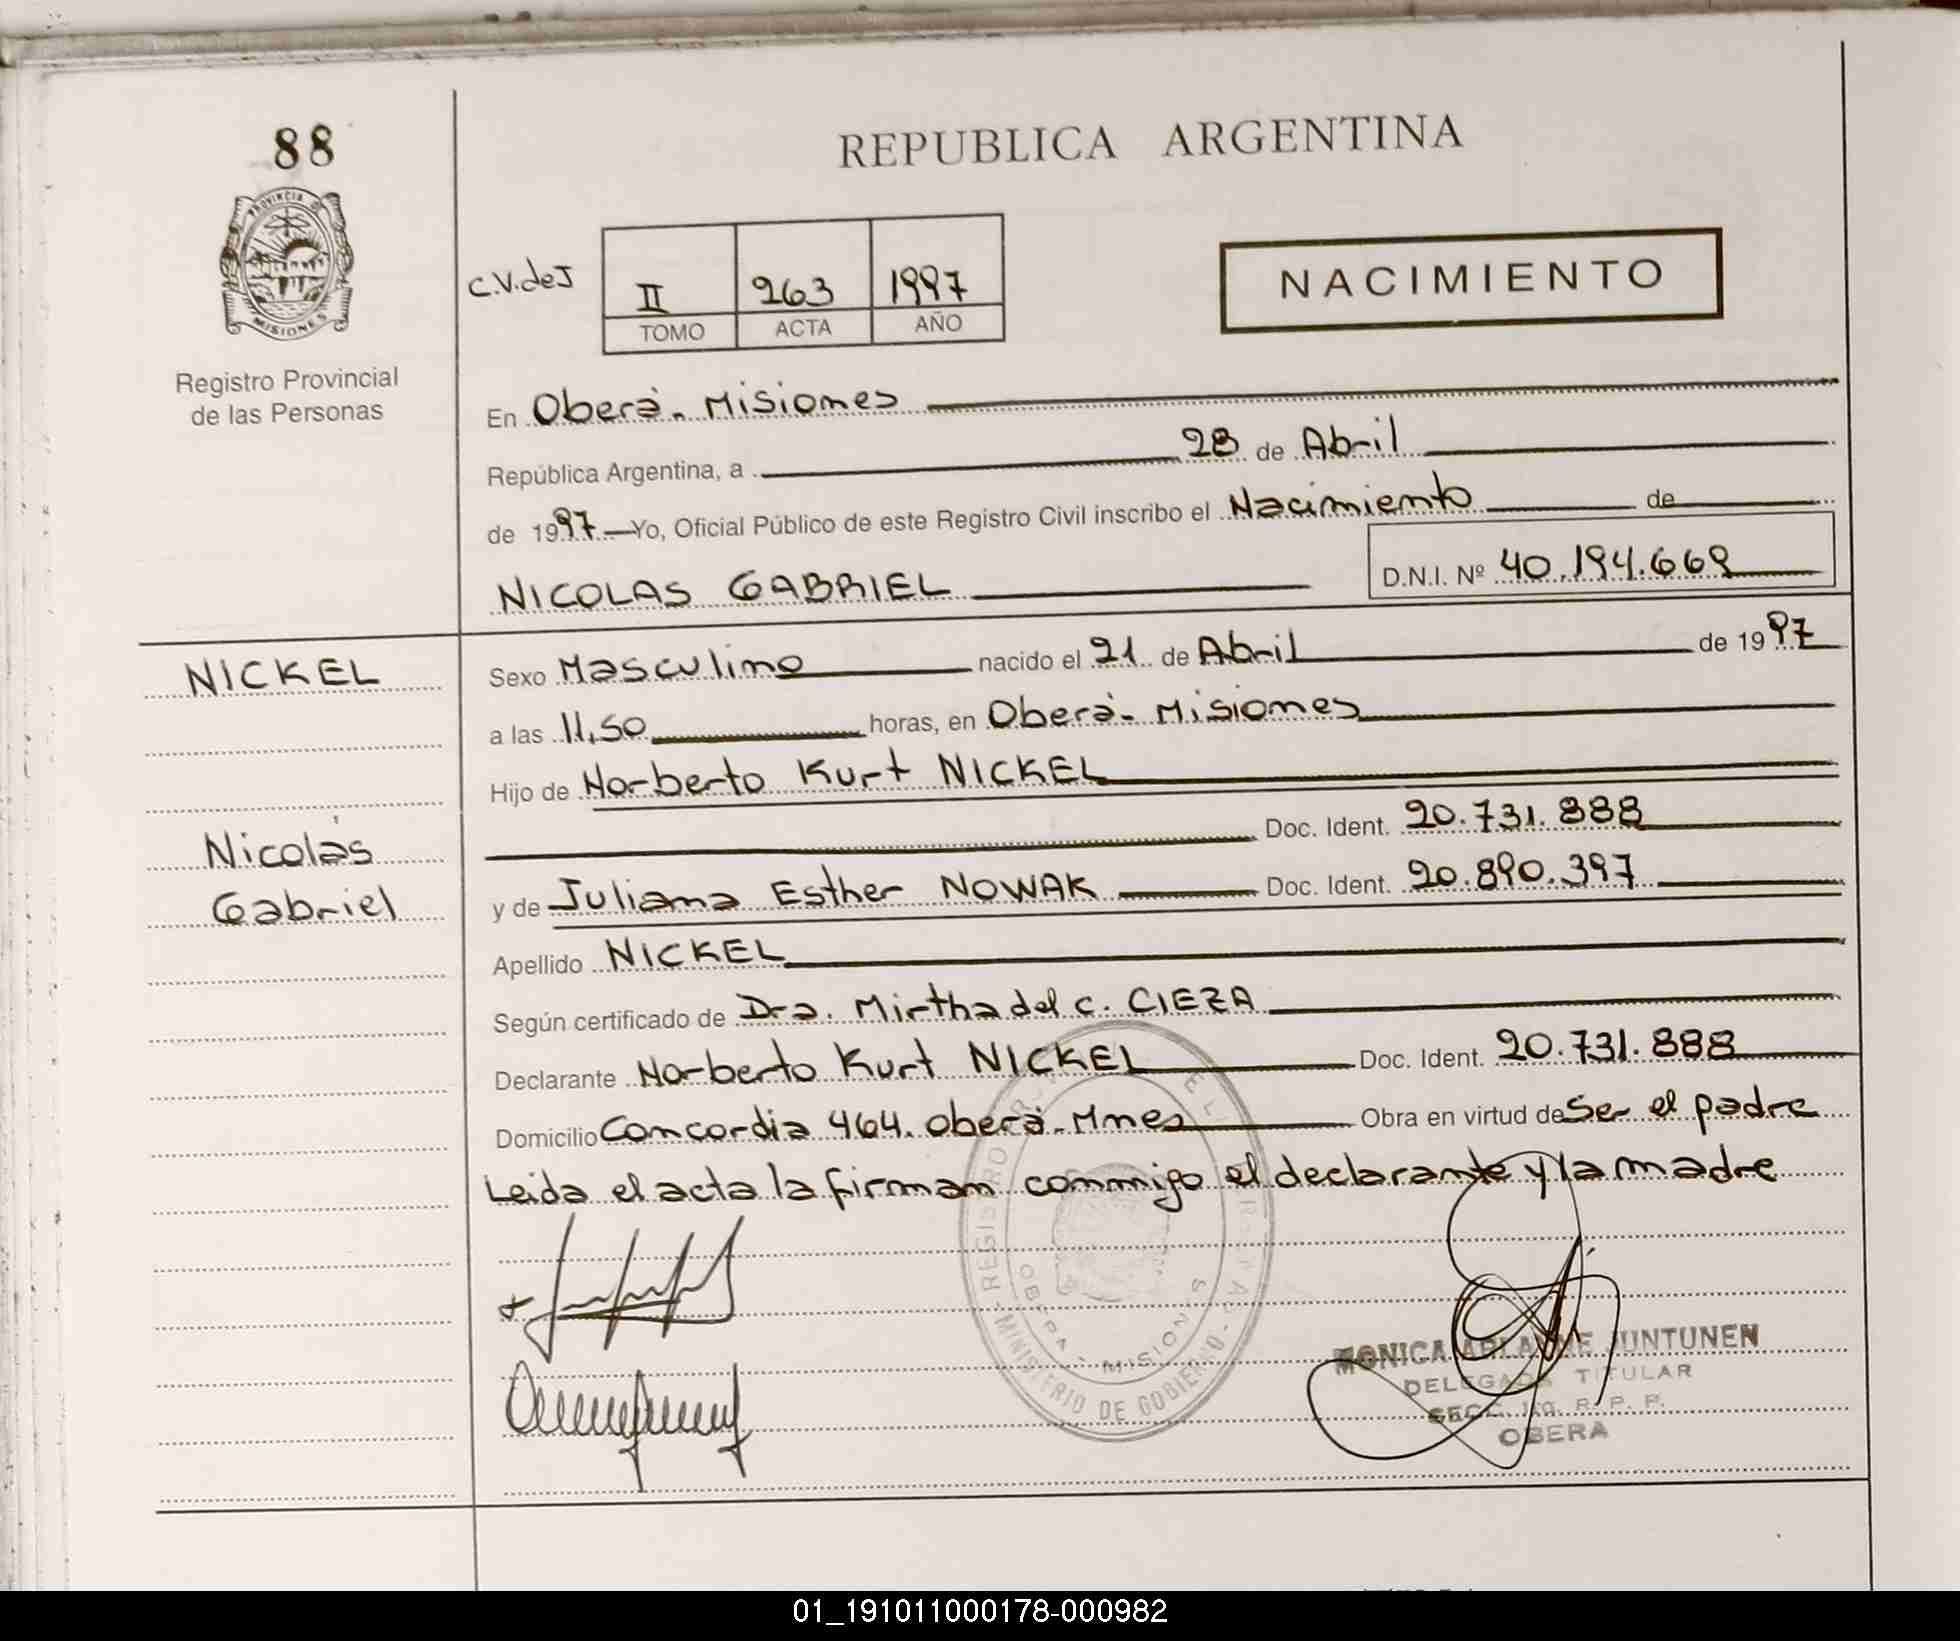 88
REPUBLICA ARGENTINA
PROVINCIA D
MISIONES
Registro Provincial
de las Personas
C.V.deJ
II 263 1997
TOMO ACTA AÑO
NACIMIENTO
En Oberà. Misiones
República Argentina, a 28 de Abril
de 1997 Yo, Oficial Público de este Registro Civil inscribo el Nacimiento de
NICOLAS GABRIEL D.N.I. Nº 40.194.669
NICKEL
Nicolás
Gabriel
Sexo Masculino nacido el 21 de Abril de 1997
a las 11,50 horas, en Oberà- Misiones
Hijo de Norberto Kurt NICKEL
Doc. Ident. 20.731.888
y de Juliana Esther NOWAK Doc. Ident. 20.890.397
Apellido NICKEL
Según certificado de Dra. Mirtha del C. CIEZA
Declarante Norberto Kurt NICKEL Doc. Ident. 20.731.888
Domicilio Concordia 464. Oberà. Mnes Obra en virtud de Ser el padre
Leida el acta la firman conmigo el declarante y la madre
REGISTRO
MINISTERIO DE GOBIERNO
OBERA - MISIONES
MONICA ARLANNE JUNTUNEN
DELEGADA TITULAR
SECC. 1ra. R. P. P.
OBERA
01_191011000178-000982